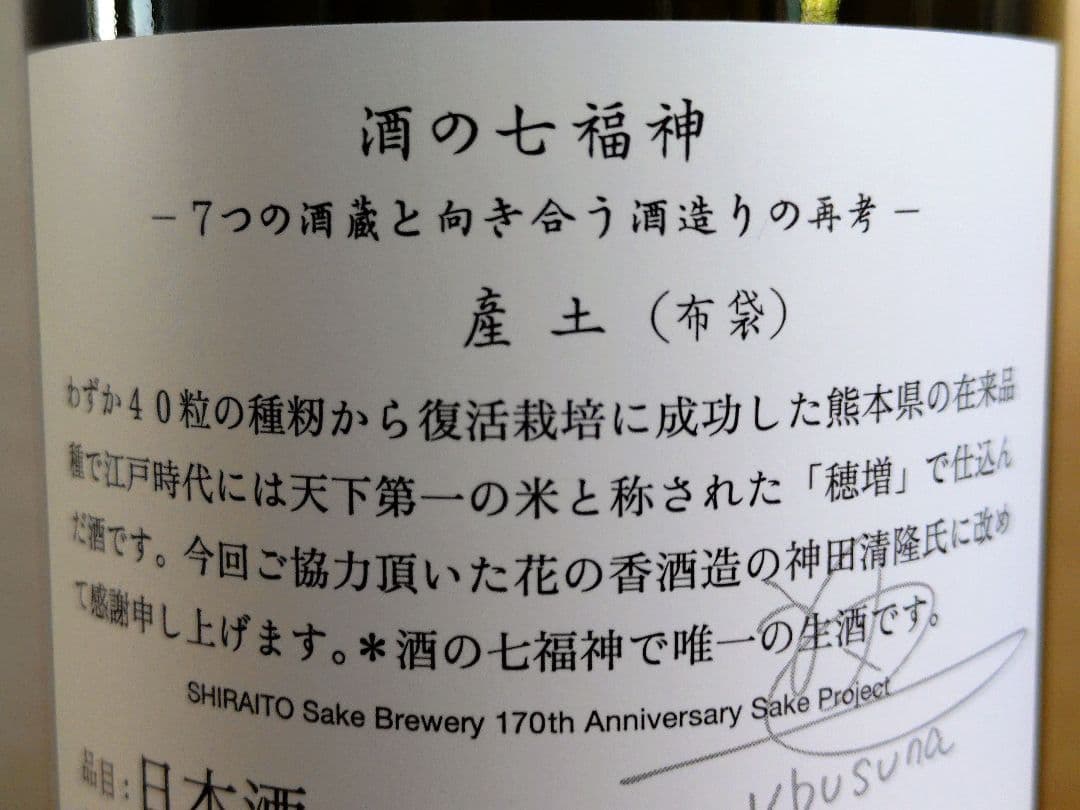 酒の七福神
－7つの酒蔵と向き合う酒造りの再考－
産土（布袋）
わずか40粒の種籾から復活栽培に成功した熊本県の在来品
種で江戸時代には天下第一の米と称された「穂増」で仕込ん
だ酒です。今回ご協力頂いた花の香酒造の神田清隆氏に改め
て感謝申し上げます。＊酒の七福神で唯一の生酒です。
SHIRAITO Sake Brewery 170th Anniversary Sake Project
品目：日本酒